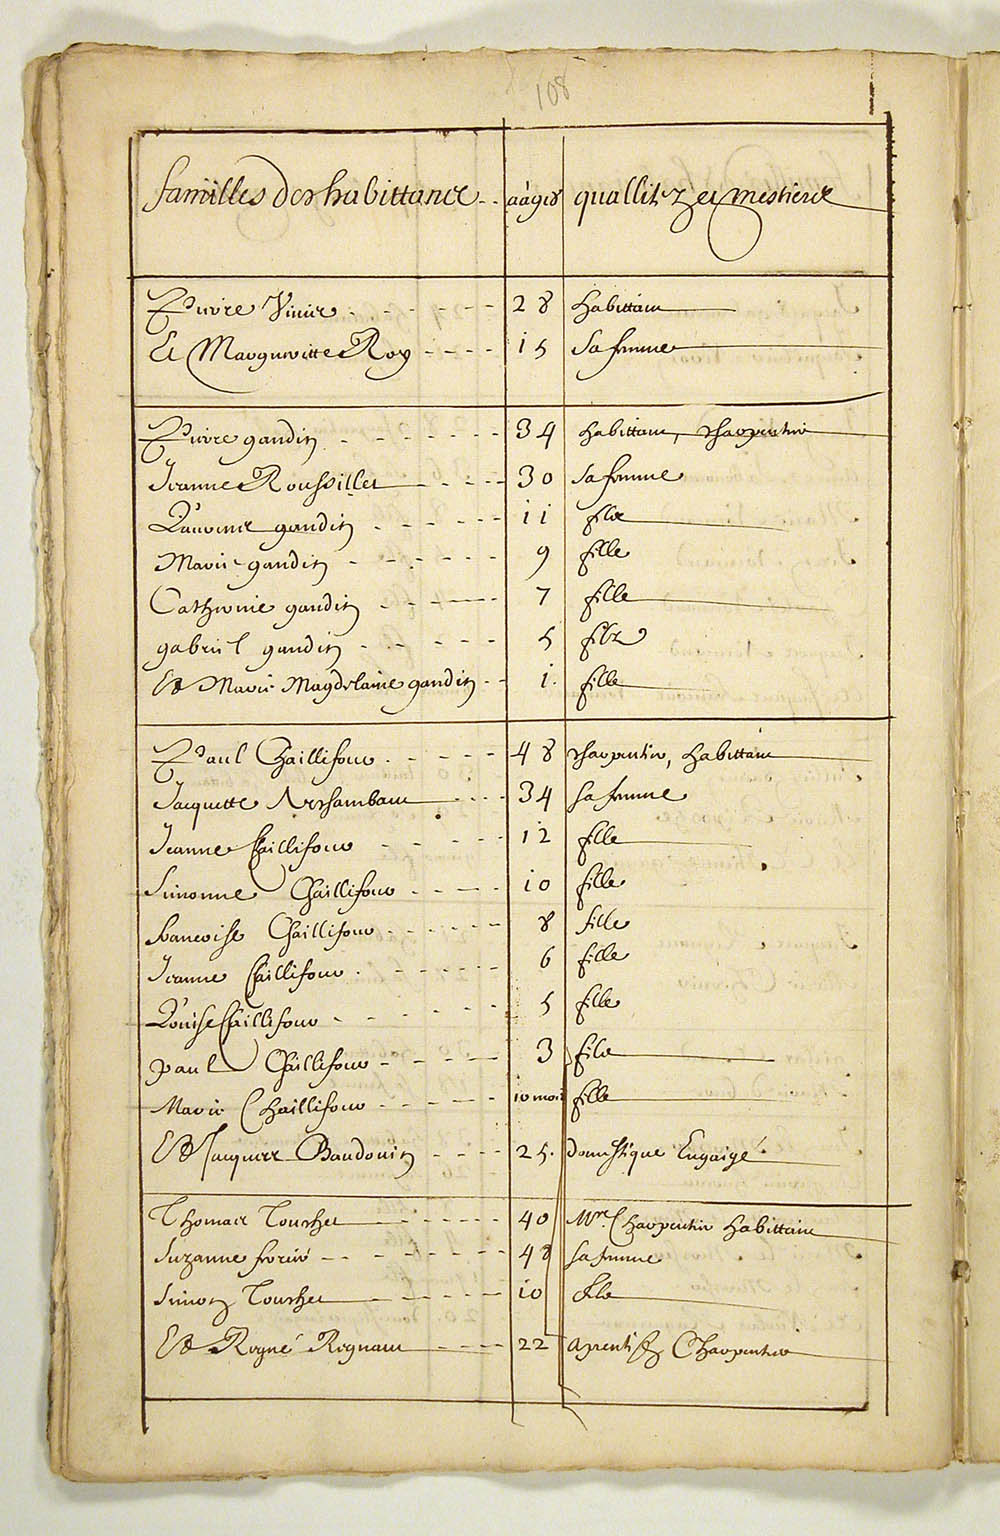 108
familles des habittans aàges quallitez et mestiers
Pierre Vivier 28 habittant
Et Margueritte Roy 15 Sa femme
Pierre gandin 34 habittant, charpentier
Jeanne Roussillet 30 Sa femme
Laurens gandin 11 filz
Marie gandin 9 fille
Catherine gandin 7 fille
gabriel gandin 5 filz
Et Marie Magdelaine gandin 1. fille
Paul Chaillifour 48 charpentier, habittant
Jacquette Archambaut 34 sa femme
Jeanne Chaillifour 12 fille
Simonne Chaillifour 10 fille
francoise Chaillifour 8 fille
Jeanne Chaillifour 6 fille
Louise Chaillifour 5 fille
paul Chaillifour 3 filz
Marie Chaillifour 10 mois fille
Et Jacques Baudouin 25. domestique Engaigé
Thomas Touchet 40 Mre. Charpentier habittant
Suzanne ferrié 48 sa femme
Simon Touchet 10 filz
Et Regné Regnaut 22 aprentif Charpentier